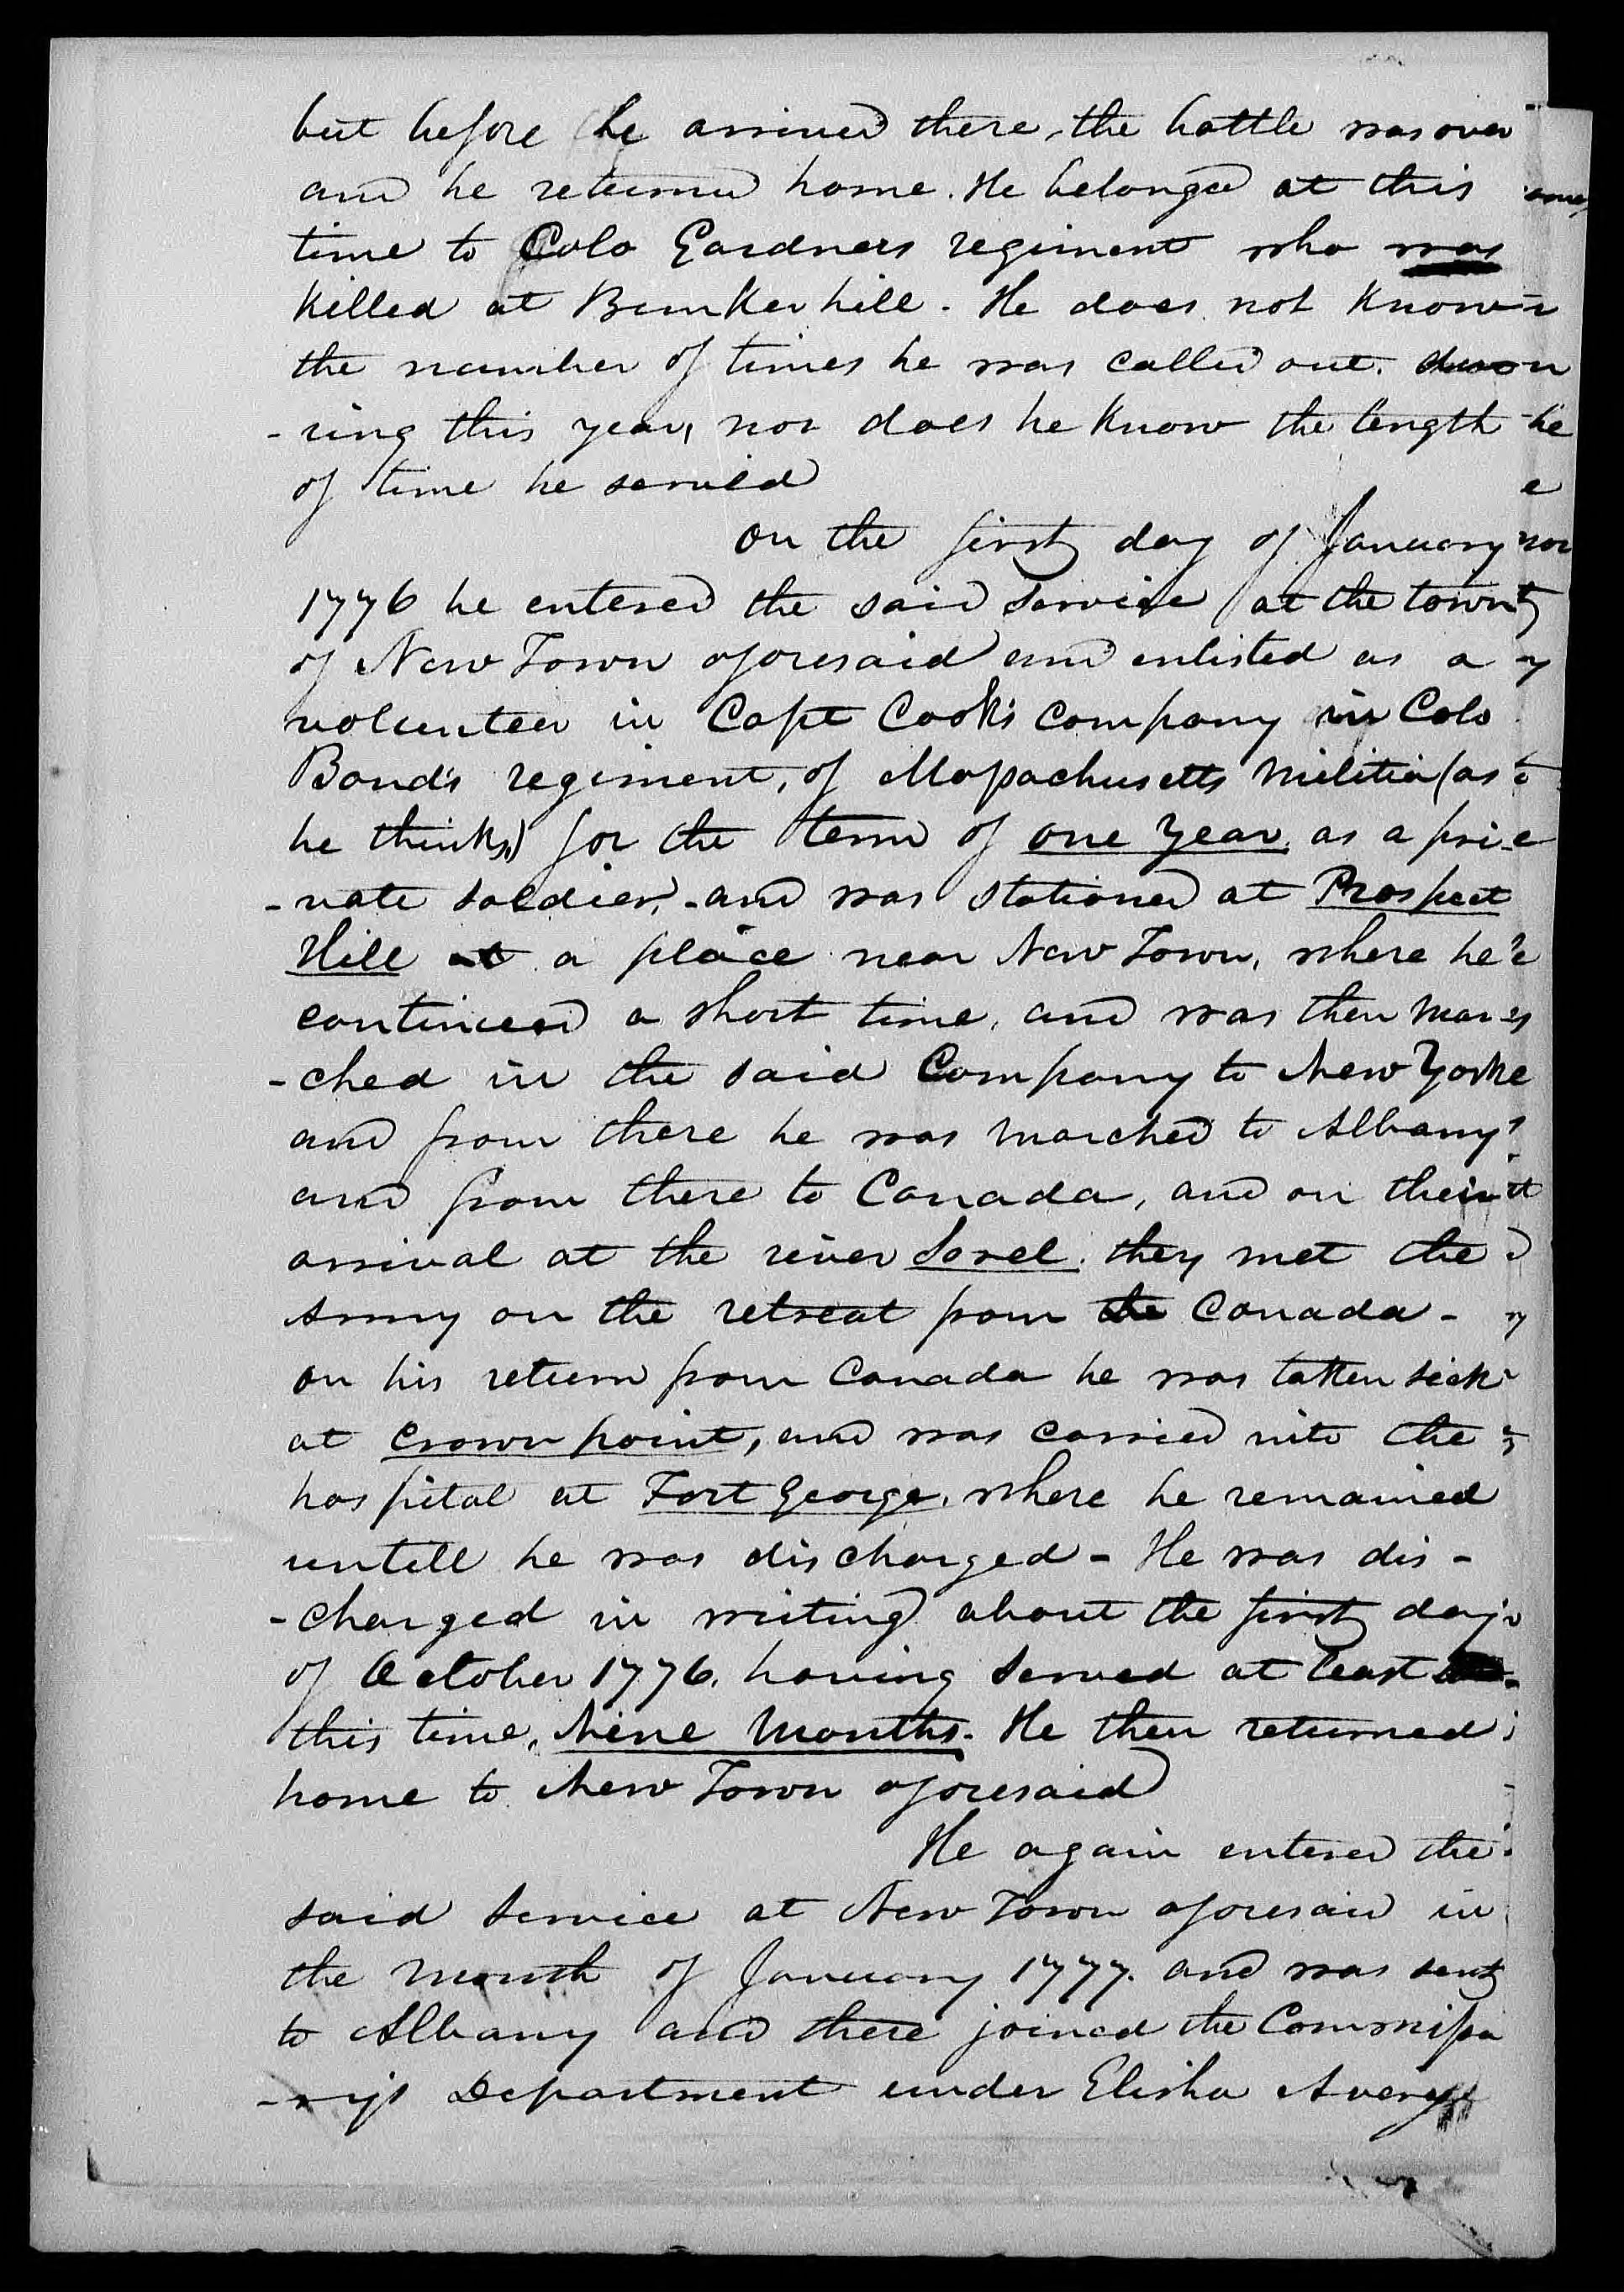 but before he arrived there, the battle was over
and he returned home. He belonged at this
time to Colo Gardners regiment who was
killed at Bunker hill - He does not know
the number of times he was called out. du
-ring this year, nor does he know the length
of time he served
On the first day of January
1776 he entered the said Service at the town
of New Town aforesaid and enlisted as a
volunteer in Capt Cook's company in Colo
Bond's regiment, of Massachusetts Militia (as
he thinks) for the term of one Year as a pri
-vate soldier, - and was stationed at Prospect
Hill at a place near New Town, where he
continued a short time, and was then mar
-ched in the said Company to New York
and from there he was marched to Albany
and from there to Canada, and on their
arrival at the river Sorel they met the
Army on the retreat from the Canada -
on his return from Canada he was taken sick
at Crown point, and was carried into the
hospital at Fort George, where he remained
untill he was discharged - He was dis -
-charged in writing about the first day
of October 1776, having Served at least
this time, Nine Months. He then returned
home to New Town aforesaid
He again entered the
said Service at New Town aforesaid in
the Month of January 1777. and was sent
to Albany and there joined the Commissa
-rys Department under Elisha Avery